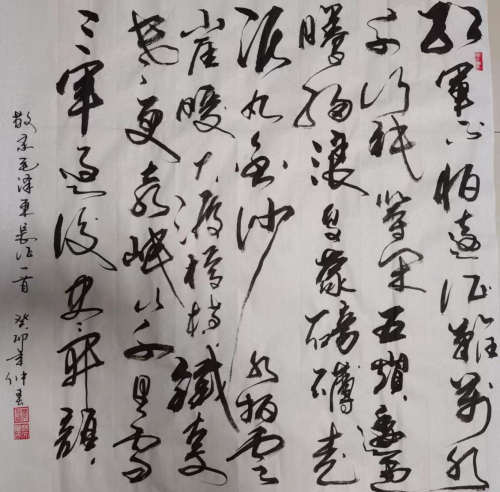 紅軍不怕遠征難萬水
千山祇等閑五嶺逶迤
騰細浪烏蒙磅礴走
泥丸金沙水拍雲
崖暖大渡橋橫鐵索
寒更喜岷山千里雪
三軍過後盡開顏
敬录毛澤東長征一首 癸卯年仲春